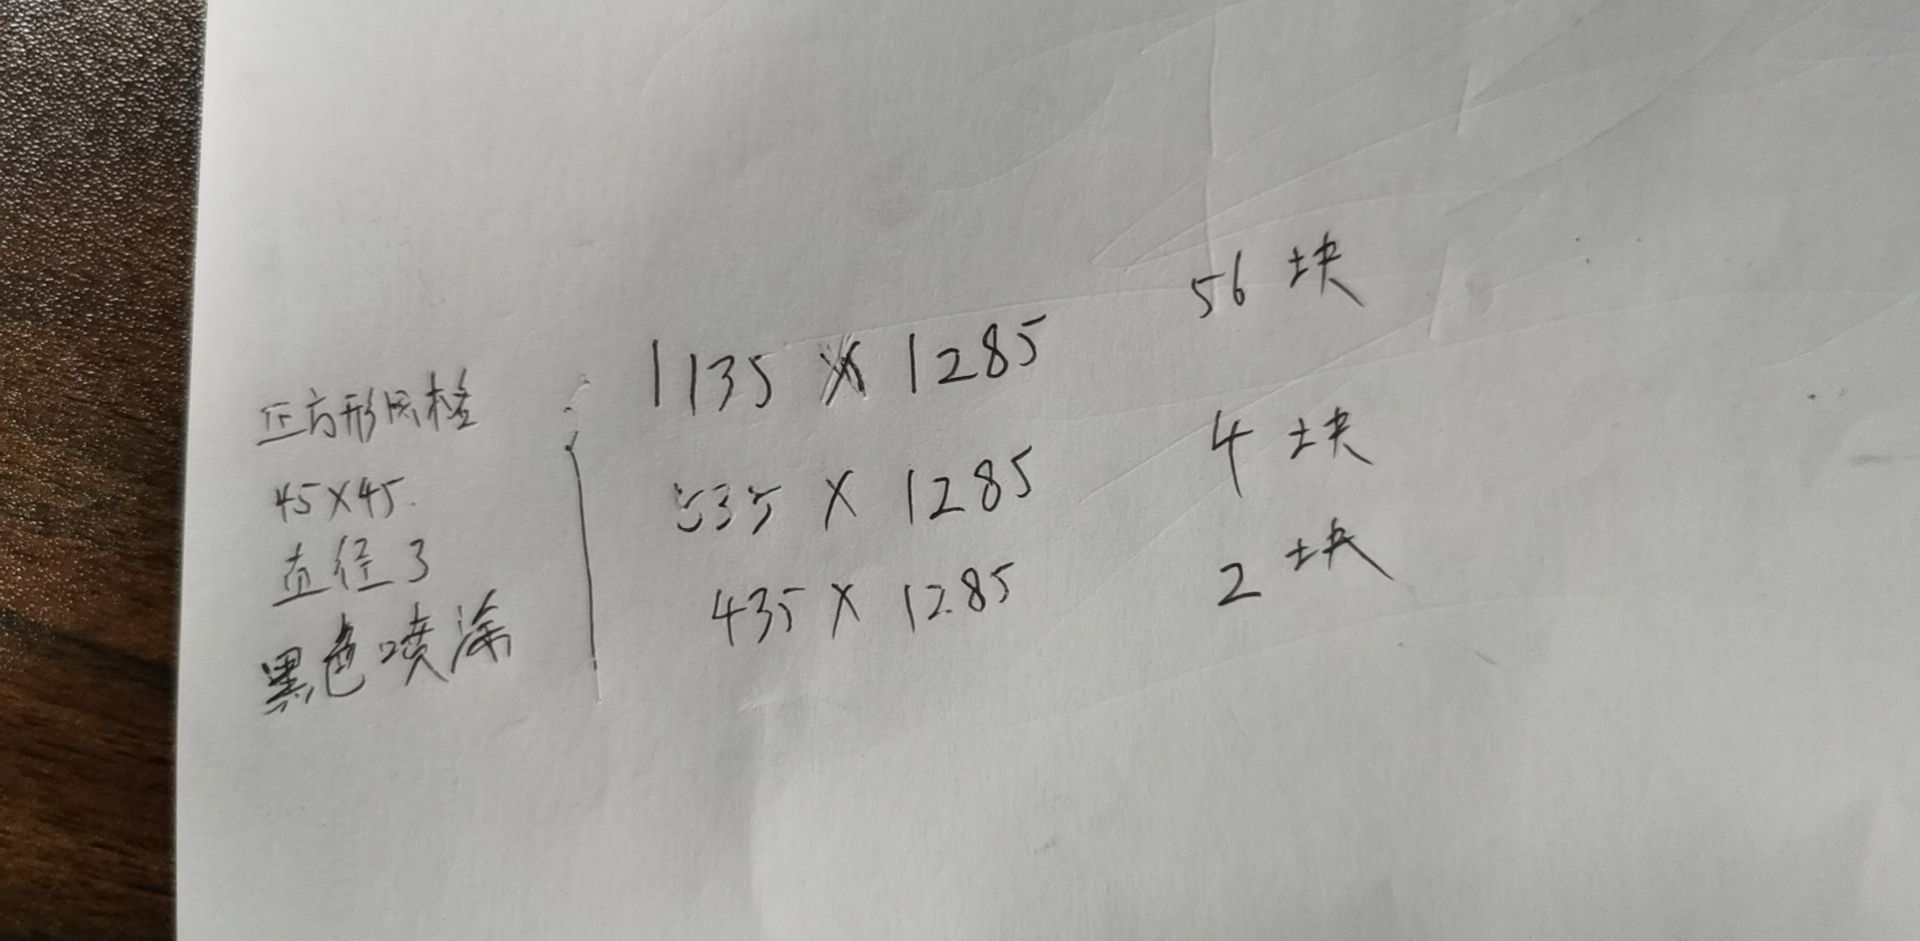 1135 X 1285 56 块
535 X 1285 4 块
435 X 1285 2 块
正方形风格
45X45
直径 3
黑色喷涂